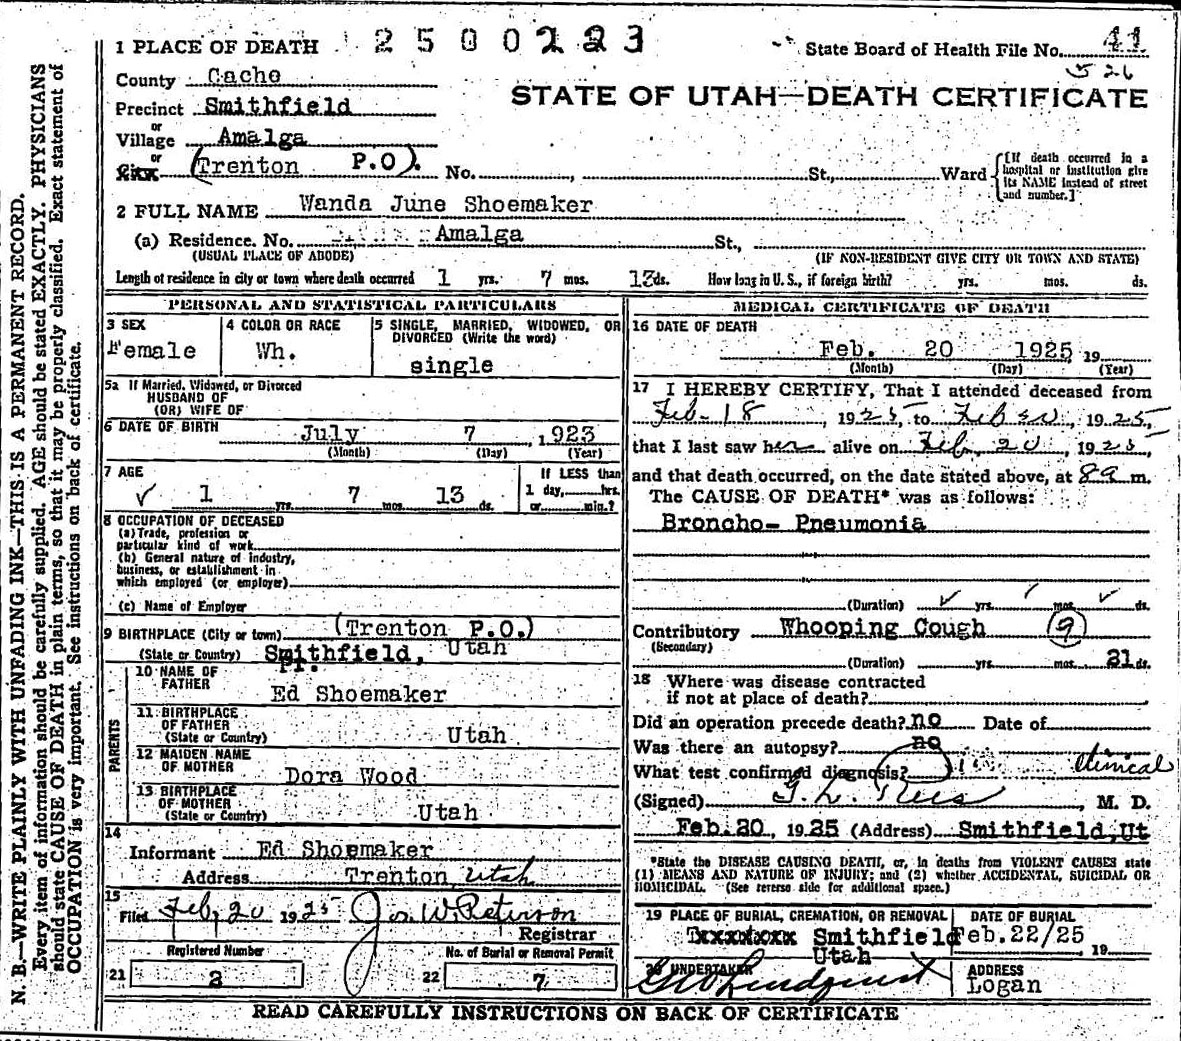 N. B.—WRITE PLAINLY WITH UNFADING INK—THIS IS A PERMANENT RECORD.
Every item of information should be carefully supplied. AGE should be stated EXACTLY. PHYSICIANS
should state CAUSE OF DEATH in plain terms, so that it may be properly classified. Exact statement of
OCCUPATION is very important. See instructions on back of certificate.
1 PLACE OF DEATH 2500223
State Board of Health File No. 41
526
County Cache
STATE OF UTAH—DEATH CERTIFICATE
Precinct Smithfield
or
Village Amalga
or
(Trenton P.O). No. , St., Ward
[If death occurred in a
hospital or institution give
its NAME instead of street
and number.]
2 FULL NAME Wanda June Shoemaker
(a) Residence. No. Amalga St.,
(USUAL PLACE OF ABODE) (IF NON-RESIDENT GIVE CITY OR TOWN AND STATE)
Length of residence in city or town where death occurred 1 yrs. 7 mos. 13 ds. How long in U. S., if foreign birth? yrs. mos. ds.
PERSONAL AND STATISTICAL PARTICULARS
3 SEX
Female
4 COLOR OR RACE
Wh.
5 SINGLE, MARRIED, WIDOWED, OR
DIVORCED (Write the word)
single
5a If Married, Widowed, or Divorced
HUSBAND OF
(OR) WIFE OF
6 DATE OF BIRTH July 7 , 1923
(Month) (Day) (Year)
7 AGE
1 yrs. 7 mos. 13 ds.
If LESS than
1 day, hrs.
or min.?
8 OCCUPATION OF DECEASED
(a) Trade, profession or
particular kind of work
(b) General nature of industry,
business, or establishment in
which employed (or employer)
(c) Name of Employer
9 BIRTHPLACE (City or town) (Trenton P.O.)
(State or Country) Smithfield, Utah
PARENTS
10 NAME OF
FATHER
Ed Shoemaker
11 BIRTHPLACE
OF FATHER
(State or Country) Utah
12 MAIDEN NAME
OF MOTHER
Dora Wood
13 BIRTHPLACE
OF MOTHER
(State or Country) Utah
14
Informant Ed Shoemaker
Address Trenton, Utah
15
Filed Feb, 20 1925 Jos. W. Peterson
Registrar
Registered Number
21 2
No. of Burial or Removal Permit
22 7
MEDICAL CERTIFICATE OF DEATH
16 DATE OF DEATH
Feb. 20 1925 19
(Month) (Day) (Year)
17 I HEREBY CERTIFY, That I attended deceased from
Feb-18, 1925, to Feb 20, 1925,
that I last saw her alive on Feb, 20, 1925,
and that death occurred, on the date stated above, at 8 a m.
The CAUSE OF DEATH* was as follows:
Broncho- Pneumonia
(Duration) yrs. mos. ds.
Contributory Whooping Cough (9)
(Secondary)
(Duration) yrs. mos. 21 ds.
18 Where was disease contracted
if not at place of death?
Did an operation precede death? no Date of
Was there an autopsy? no
What test confirmed diagnosis? Clinical
(Signed) G. L. Rees, M. D.
Feb.20, 1925 (Address) Smithfield,Ut
*State the DISEASE CAUSING DEATH, or, in deaths from VIOLENT CAUSES state
(1) MEANS AND NATURE OF INJURY; and (2) whether ACCIDENTAL, SUICIDAL OR
HOMICIDAL. (See reverse side for additional space.)
19 PLACE OF BURIAL, CREMATION, OR REMOVAL
Smithfield
Utah
DATE OF BURIAL
Feb.22/25 19
20 UNDERTAKER
G W Lindquist
ADDRESS
Logan
READ CAREFULLY INSTRUCTIONS ON BACK OF CERTIFICATE